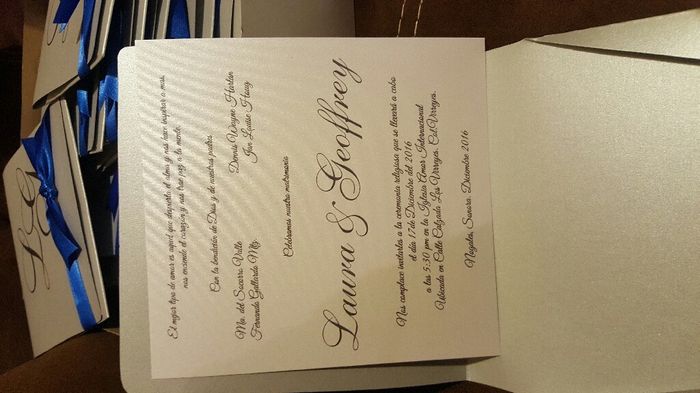 El mejor tipo de amor es aquel que despierta el alma y nos hace inspirar a mas,
nos enciende el corazón y nos trae paz a la mente.
Con la bendición de Dios y de nuestros padres
Ma. del Socorro Valle
Fernando Gallardo Mtz
Dennis Wayne Harlan
Jan Louise Haug
Celebramos nuestro matrimonio
Laura & Geoffrey
Nos complace invitarles a la ceremonia religiosa que se llevará a cabo
el día 17 de Diciembre del 2016
a las 5:30 pm en la Iglesia Amor Internacional
Ubicada en Calle Calzada Los Virreyes. Col. Virreyes.
Nogales, Sonora. Diciembre 2016
L G